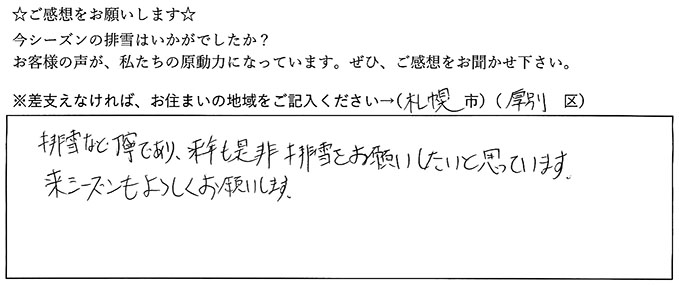 ☆ご感想をお願いします☆
今シーズンの排雪はいかがでしたか？
お客様の声が、私たちの原動力になっています。ぜひ、ご感想をお聞かせ下さい。
※差支えなければ、お住まいの地域をご記入ください→（札幌 市）（厚別 区）
排雪など 寧であり、来年も是非 排雪をお願いしたいと思っています。
来シーズンもよろしくお願いします。